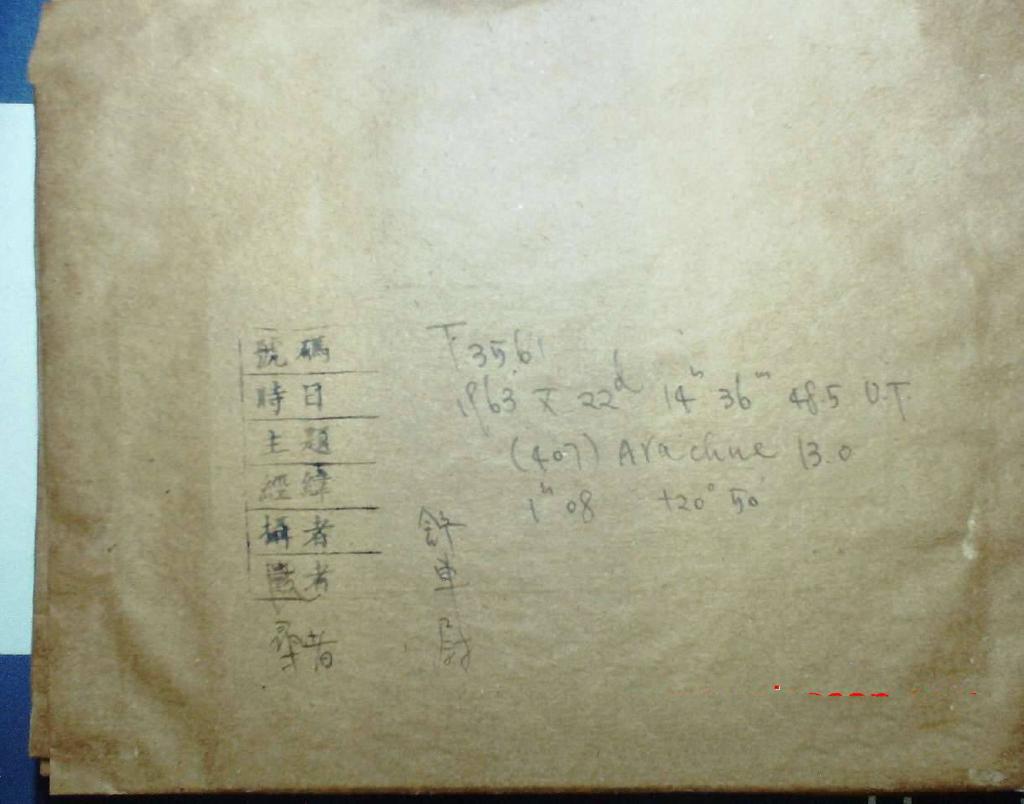 號碼 T 3561
時日 1963 X 22d 14h 36m 48.5 U.T.
主題 (407) Arachne 13.0
經緯 1h 08 +20° 50'
攝者 許
者 車
尋者 尉